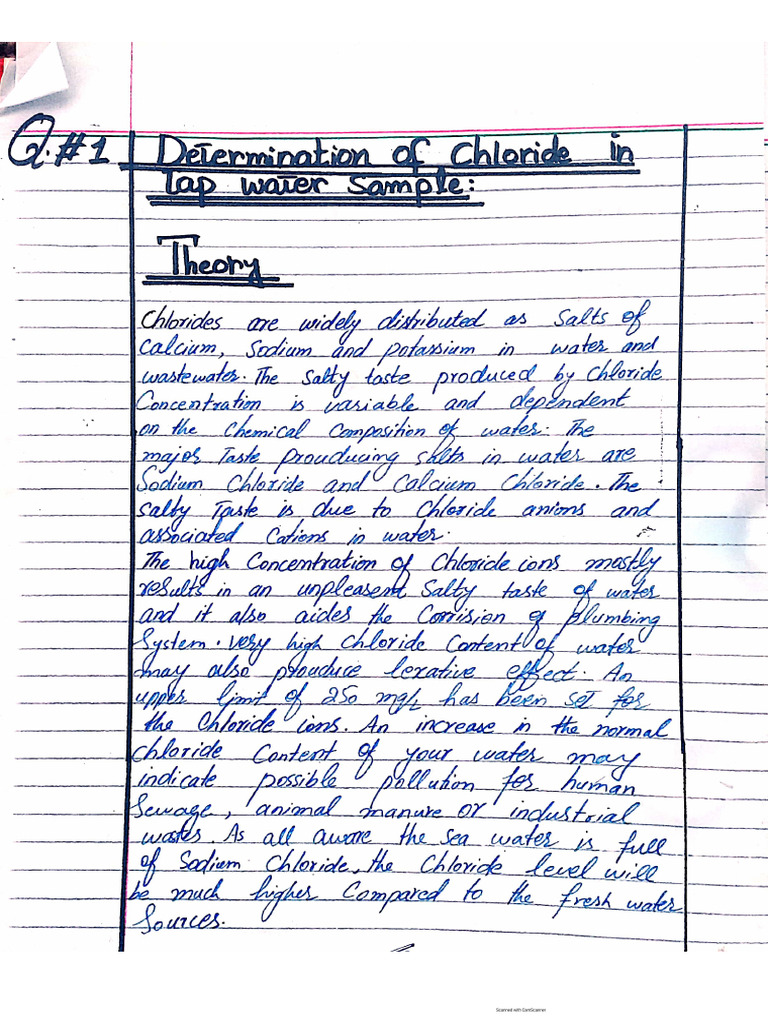 Q.#1 Determination of Chloride in
Tap water Sample:
Theory
Chlorides are widely distributed as Salts of
Calcium, Sodium and potassium in water and
wastewater. The Salty taste produced by Chloride
Concentration is variable and dependent
on the Chemical Composition of water. The
major Taste prouducing salts in water are
Sodium Chloride and Calcium Chloride. The
Salty Taste is due to Chloride anions and
associated Cations in water.
The high Concentration of Chloride ions mostly
results in an unpleasent Salty taste of water
and it also aides the Corrision of plumbing
System. very high Chloride Content of water
may also prouduce lexative effect. An
upper limit of 250 mg/L has been set for
the Chloride ions. An increase in the normal
Chloride Content of your water may
indicate possible pollution for human
Sewage, animal manure or industrial
water. As all aware the sea water is full
of Sodium Chloride, the Chloride level will
be much higher Compared to the fresh water
Sources.
Scanned with CamScanner